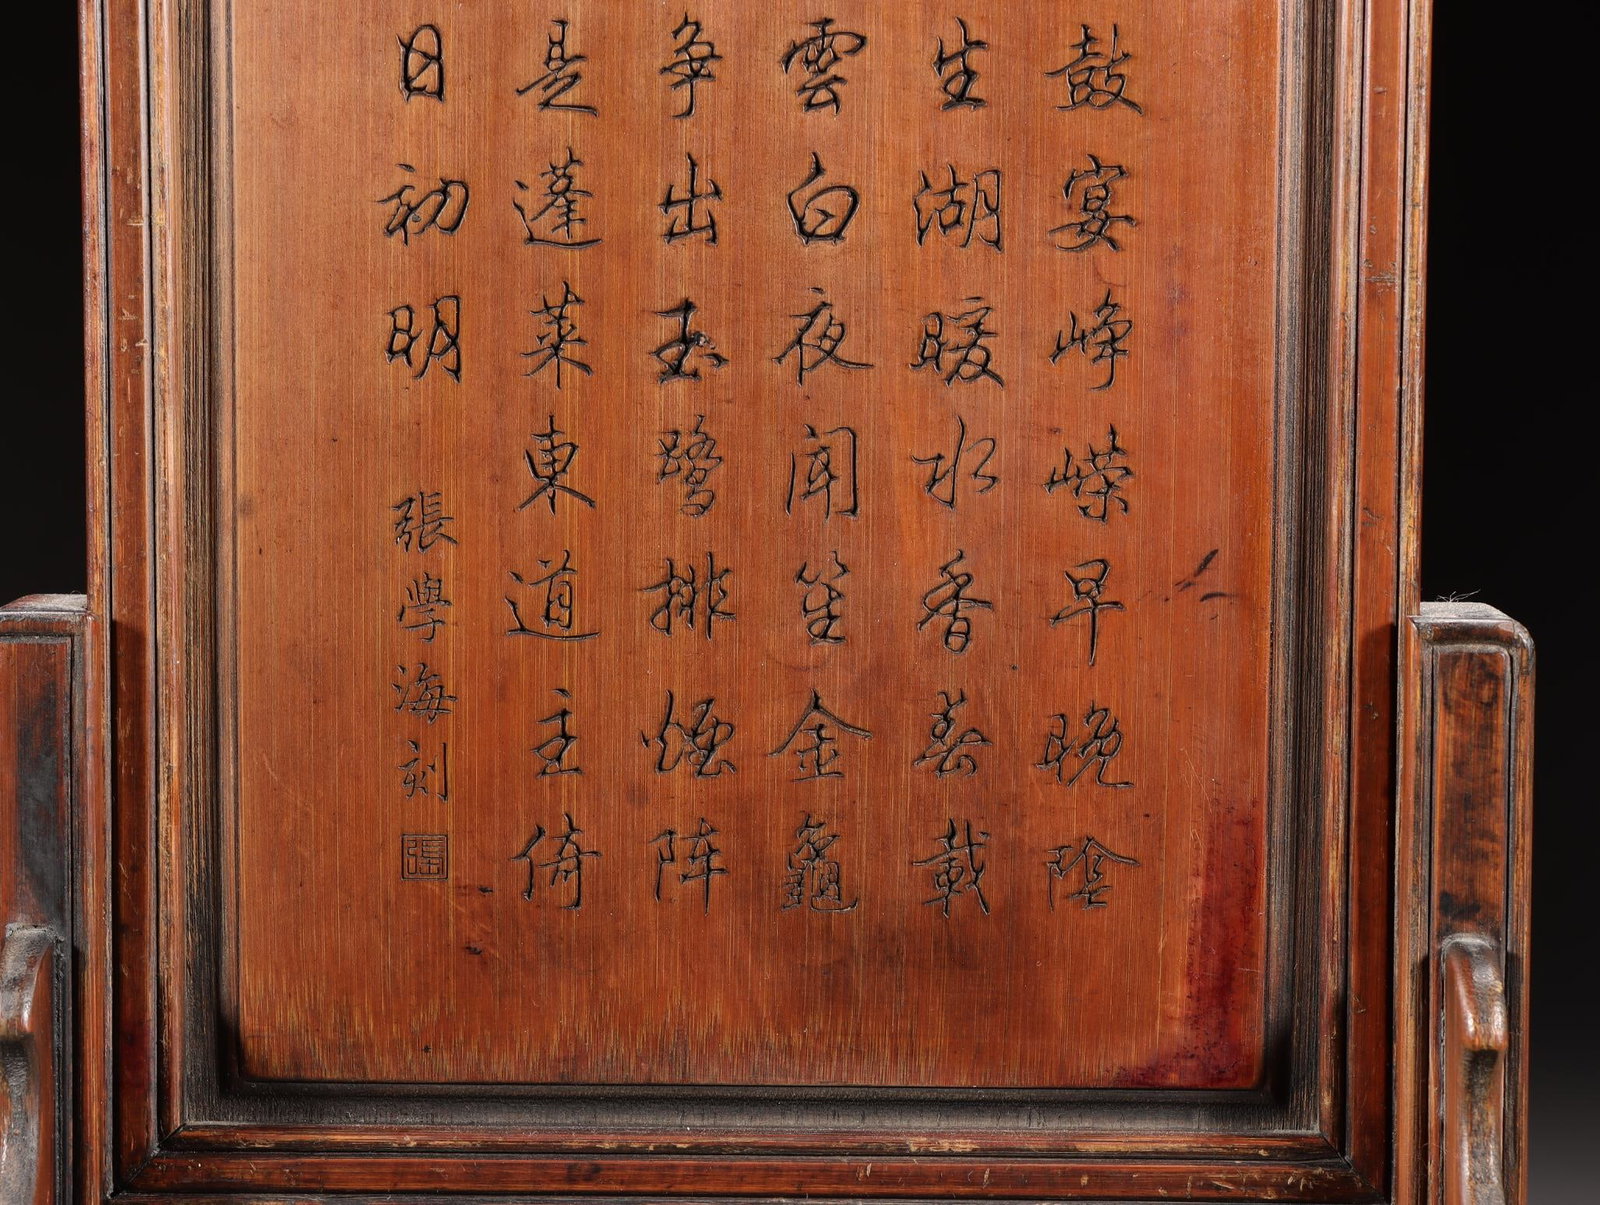 鼓宴崢嶸早晚陰
生湖暖水香春載
雲白夜闻笙金龜
争出玉鹭排煙阵
是蓬莱東道主倚
日初明
張學海刻
張